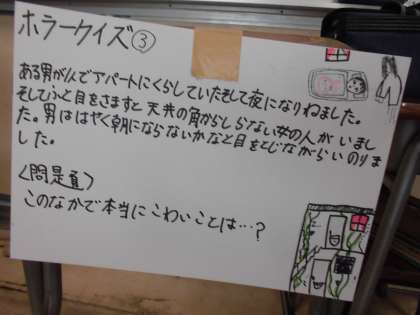 ホラークイズ③
ある男がんでアパートにくらしていたそして夜になりねました。
そしてふと目をさますと天井の角からしらない女の人がいまし
た。男ははやく朝にならないかなと目をとじながらいのりま
した。
〈問題〉
このなかで本当にこわいことは…?